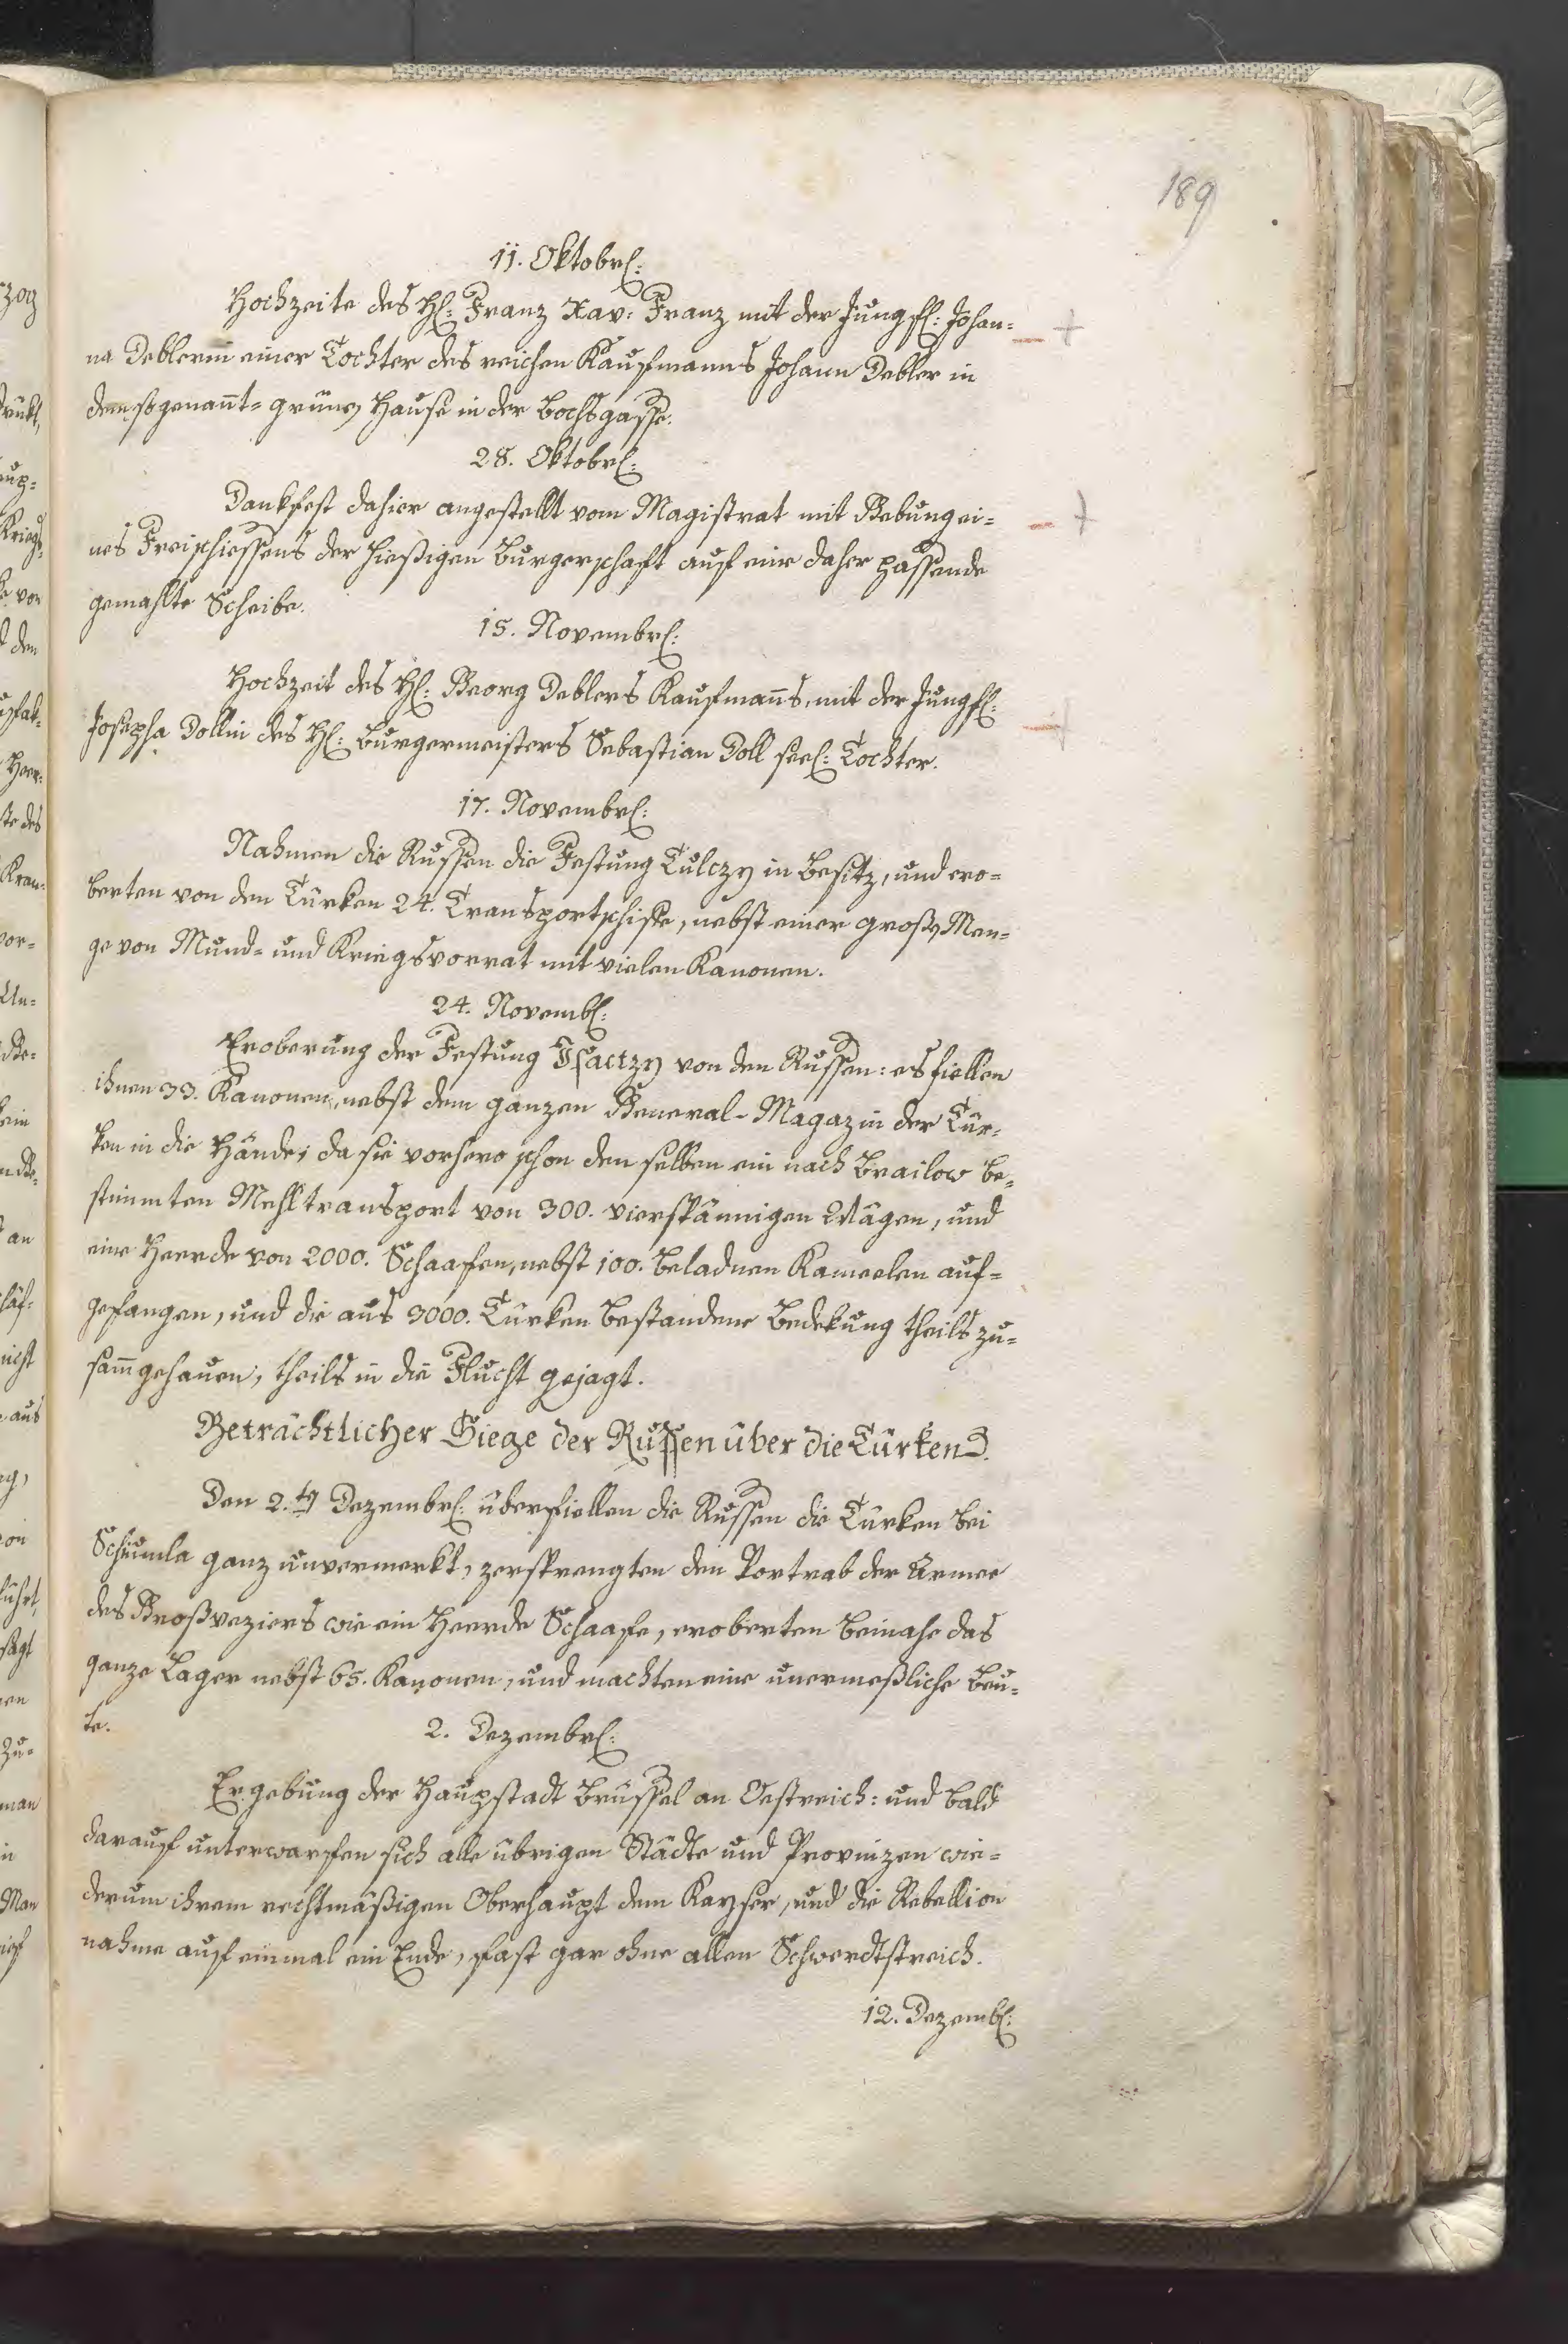 189
11. Oktobr:
Hochzeite des H: Franz Xav: Franz mit der Jungf: Johan=
na Deblerin einer Tochter des reichen Kaufmanns Johann Debler in
dem sogenannt= grünen Hause in der Bocksgasse.
28. Oktobr:
Dankfest dahier angestellt vom Magistrat mit Gebung ei=
nes Freischiessens der hießigen Burgerschaft auf eine daher passende
gemahlte Scheibe.
15. Novembr:
Hochzeit des H: Georg Deblers Kaufmanns, mit der Jungf:
Josepha Dollin des H: Burgermeisters Sebastian Doll seel: Tochter.
17. Novembr:
Nahmen die Russen die Festung Tulczy in Besitz, und ero=
berten von den Türken 24. Transportschiffe, nebst einer großen Men=
ge von Mund= und Kriegsvorrat mit vielen Kanonen.
24. Novemb:
Eroberung der Festung Isactzy von den Russen: es fiellen
ihnen 33. Kanonen, nebst dem ganzen General-Magazin der Tür=
ken in die Hände; da sie vorhero schon denselben ein nach Brailow be=
stimmten Mehltransport von 300. vierspännigen Wägen, und
eine Heerde von 2000. Schaafen, nebst 100. beladnen Kameelen auf=
gefangen, und die aus 3000. Türken bestandene Bedekung theils zu=
samgehauen, theils in die Flucht gejagt.
Beträchtlicher Siege der Russen über die Türken.
Den 2.ten Dezembr: überfiellen die Russen die Türken bei
Schumla ganz unvermerkt, zersprengten den Vortrab der Armee
des Großveziers wie ein Heerde Schaafe, eroberten beinahe das
ganze Lager nebst 65. Kanonen, und machten eine unermeßliche Beu=
te.
2. Dezembr:
Ergebung der Haupstadt Brüssel an Oestreich: und bald
darauf unterwarfen sich alle übrigen Städte und Provinzen wie=
derum ihrem rechtmäßigen Oberhaupt dem Kayser, und die Rebellion
nahme auf einmal ein Ende, fast gar ohne allen Schwerdtstreich.
12. Dezemb: